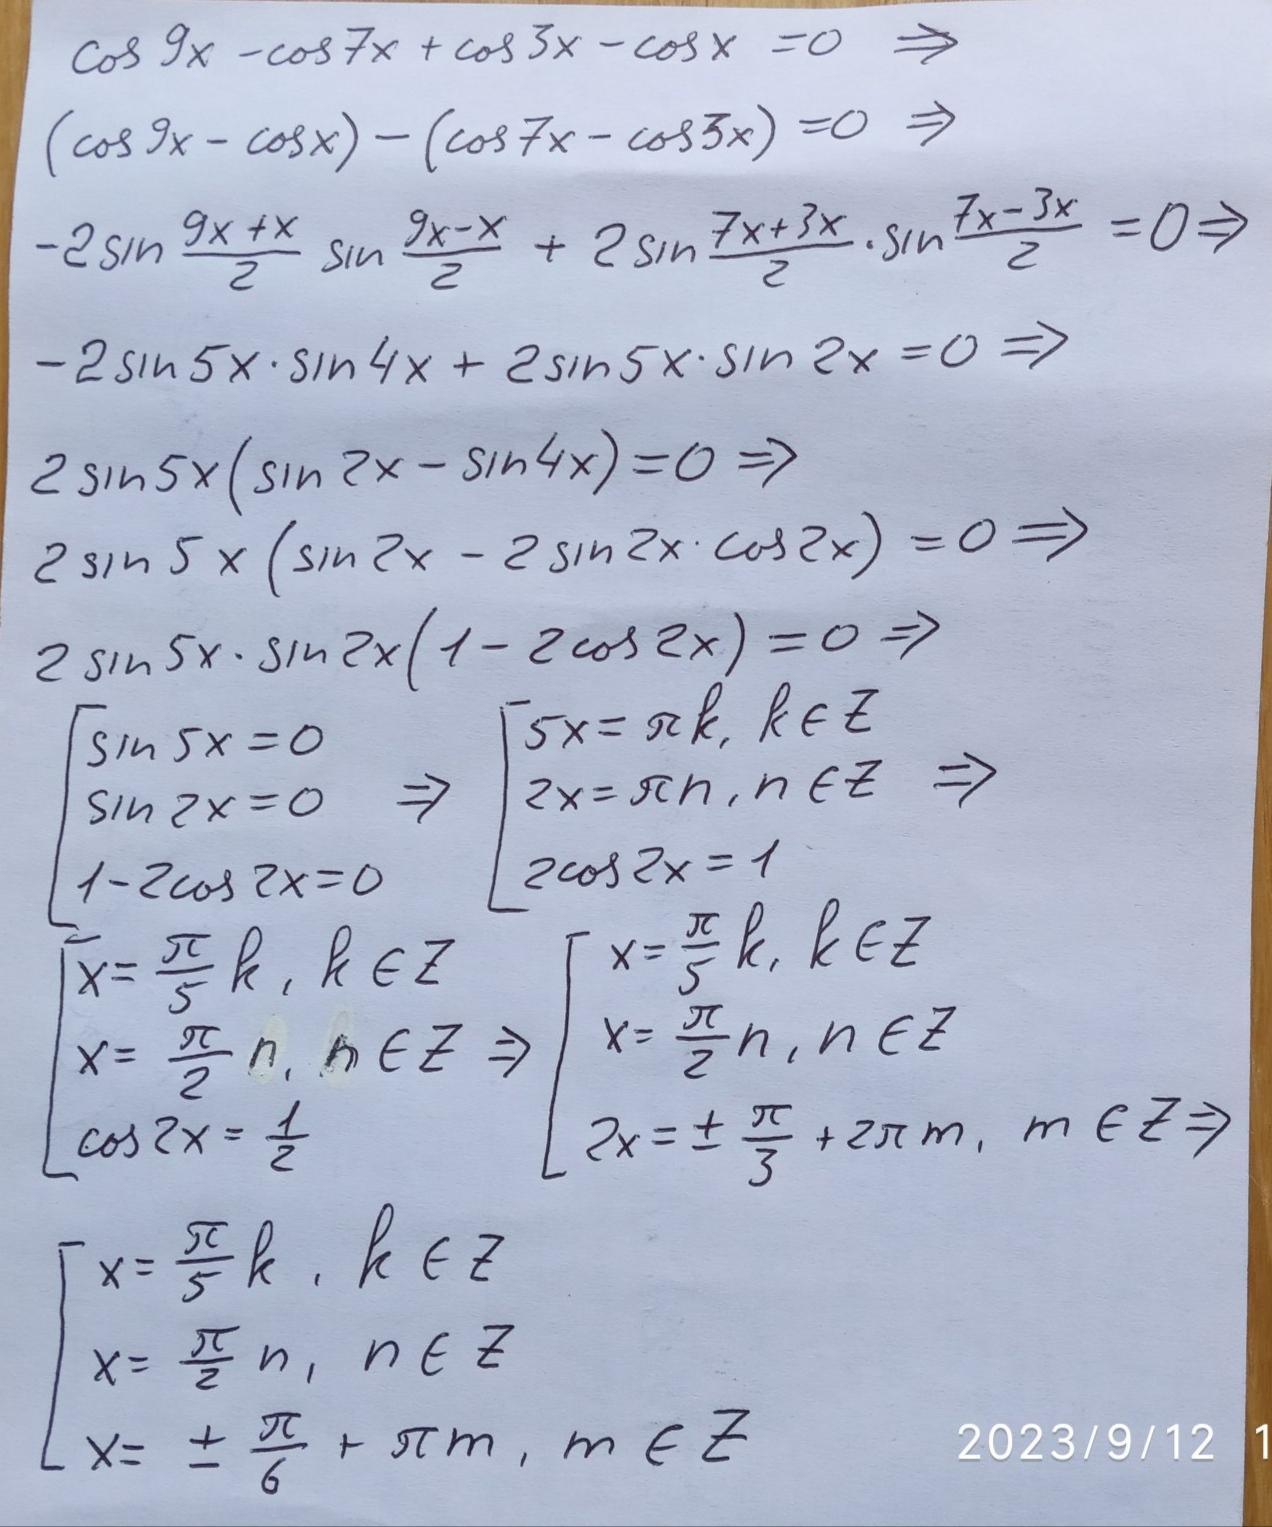 cos 9x - cos 7x + cos 3x - cos x = 0 ⇒
(cos 9x - cos x) - (cos 7x - cos 3x) = 0 ⇒
-2 sin (9x + x)/2 sin (9x - x)/2 + 2 sin (7x + 3x)/2 · sin (7x - 3x)/2 = 0 ⇒
-2 sin 5x · sin 4x + 2 sin 5x · sin 2x = 0 ⇒
2 sin 5x (sin 2x - sin 4x) = 0 ⇒
2 sin 5x (sin 2x - 2 sin 2x · cos 2x) = 0 ⇒
2 sin 5x · sin 2x (1 - 2 cos 2x) = 0 ⇒
[ sin 5x = 0
sin 2x = 0 ⇒
1 - 2 cos 2x = 0
[ 5x = πk, k ∈ Z
2x = πn, n ∈ Z ⇒
2 cos 2x = 1
[ x = π/5 k, k ∈ Z
x = π/2 n, n ∈ Z ⇒
cos 2x = 1/2
[ x = π/5 k, k ∈ Z
x = π/2 n, n ∈ Z
2x = ± π/3 + 2πm, m ∈ Z ⇒
[ x = π/5 k, k ∈ Z
x = π/2 n, n ∈ Z
x = ± π/6 + πm, m ∈ Z
2023/9/12 1